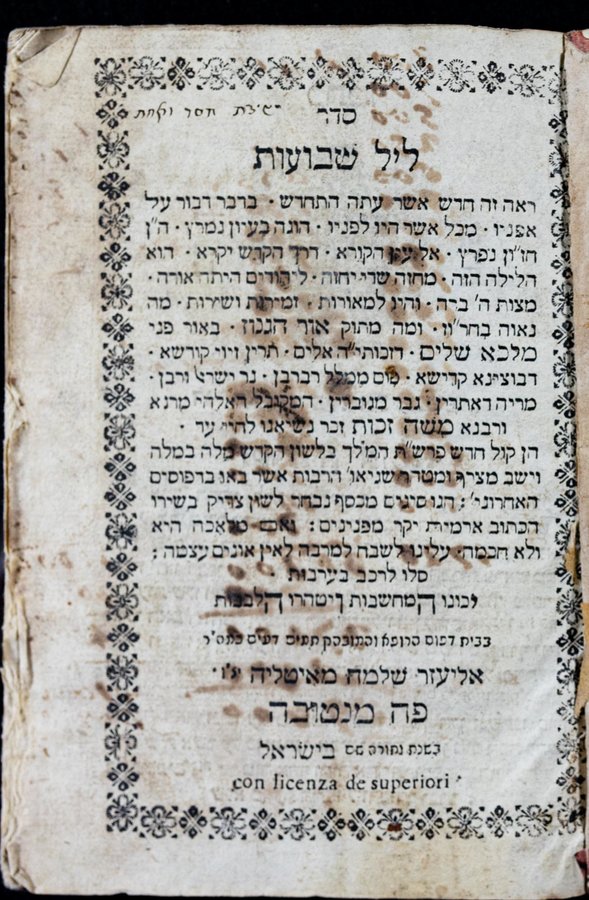 סדר
ליל שבועות
ראה זה חדש אשר עתה התחדש · בדבר דבור על
אפניו · מכל אשר היו לפניו · הוגה בעיון נמרץ · ה"ן
חז"ון נפרץ · אל עין הקורא · דרך הקדש יקרא · הוא
הלילה הזה · מחזה שדי יחזה · ליהודים היתה אורה ·
מצות ה' ברה · והיו למאורות · זמירות ושירות · מה
נאוה בחר"וז · ומה מתוק אור הגנוז · באור פני
מלכא שלים · דזכותי"ה אלים · תרין זיוי קורשא ·
דבוצינא קדישא · פום ממלל רברבן · נר ישראל ורבן ·
מריה דאתרין · גבר מגוברין · המקובל האלהי מרנא
ורבנא משה זכות זכר נשיאנו לחיי עד ·
הן קול חדש פרש"ת המ'לך בלשון הקדש מלה במלה
וישב מציף ומטהר שגיאו' הרבות אשר באו בדפוסים
האחרוני' : הנו סיגים מכסף נבחר לשון צדיק בשירו
הכתוב ארמית יקר מפנינים : ואם מלאכה היא
ולא חכמה · עלינו לשבח למרבה לאין אונים עצמה ;
סלו לרכב בערבות ·
יכונו המחשבות ויטהרו הלבבות
בבית דפוס הרופא
אליעזר שלמה מאיטליה יצ"ו ·
פה מנטובה
בשנת
בישראל
con licenza de superiori